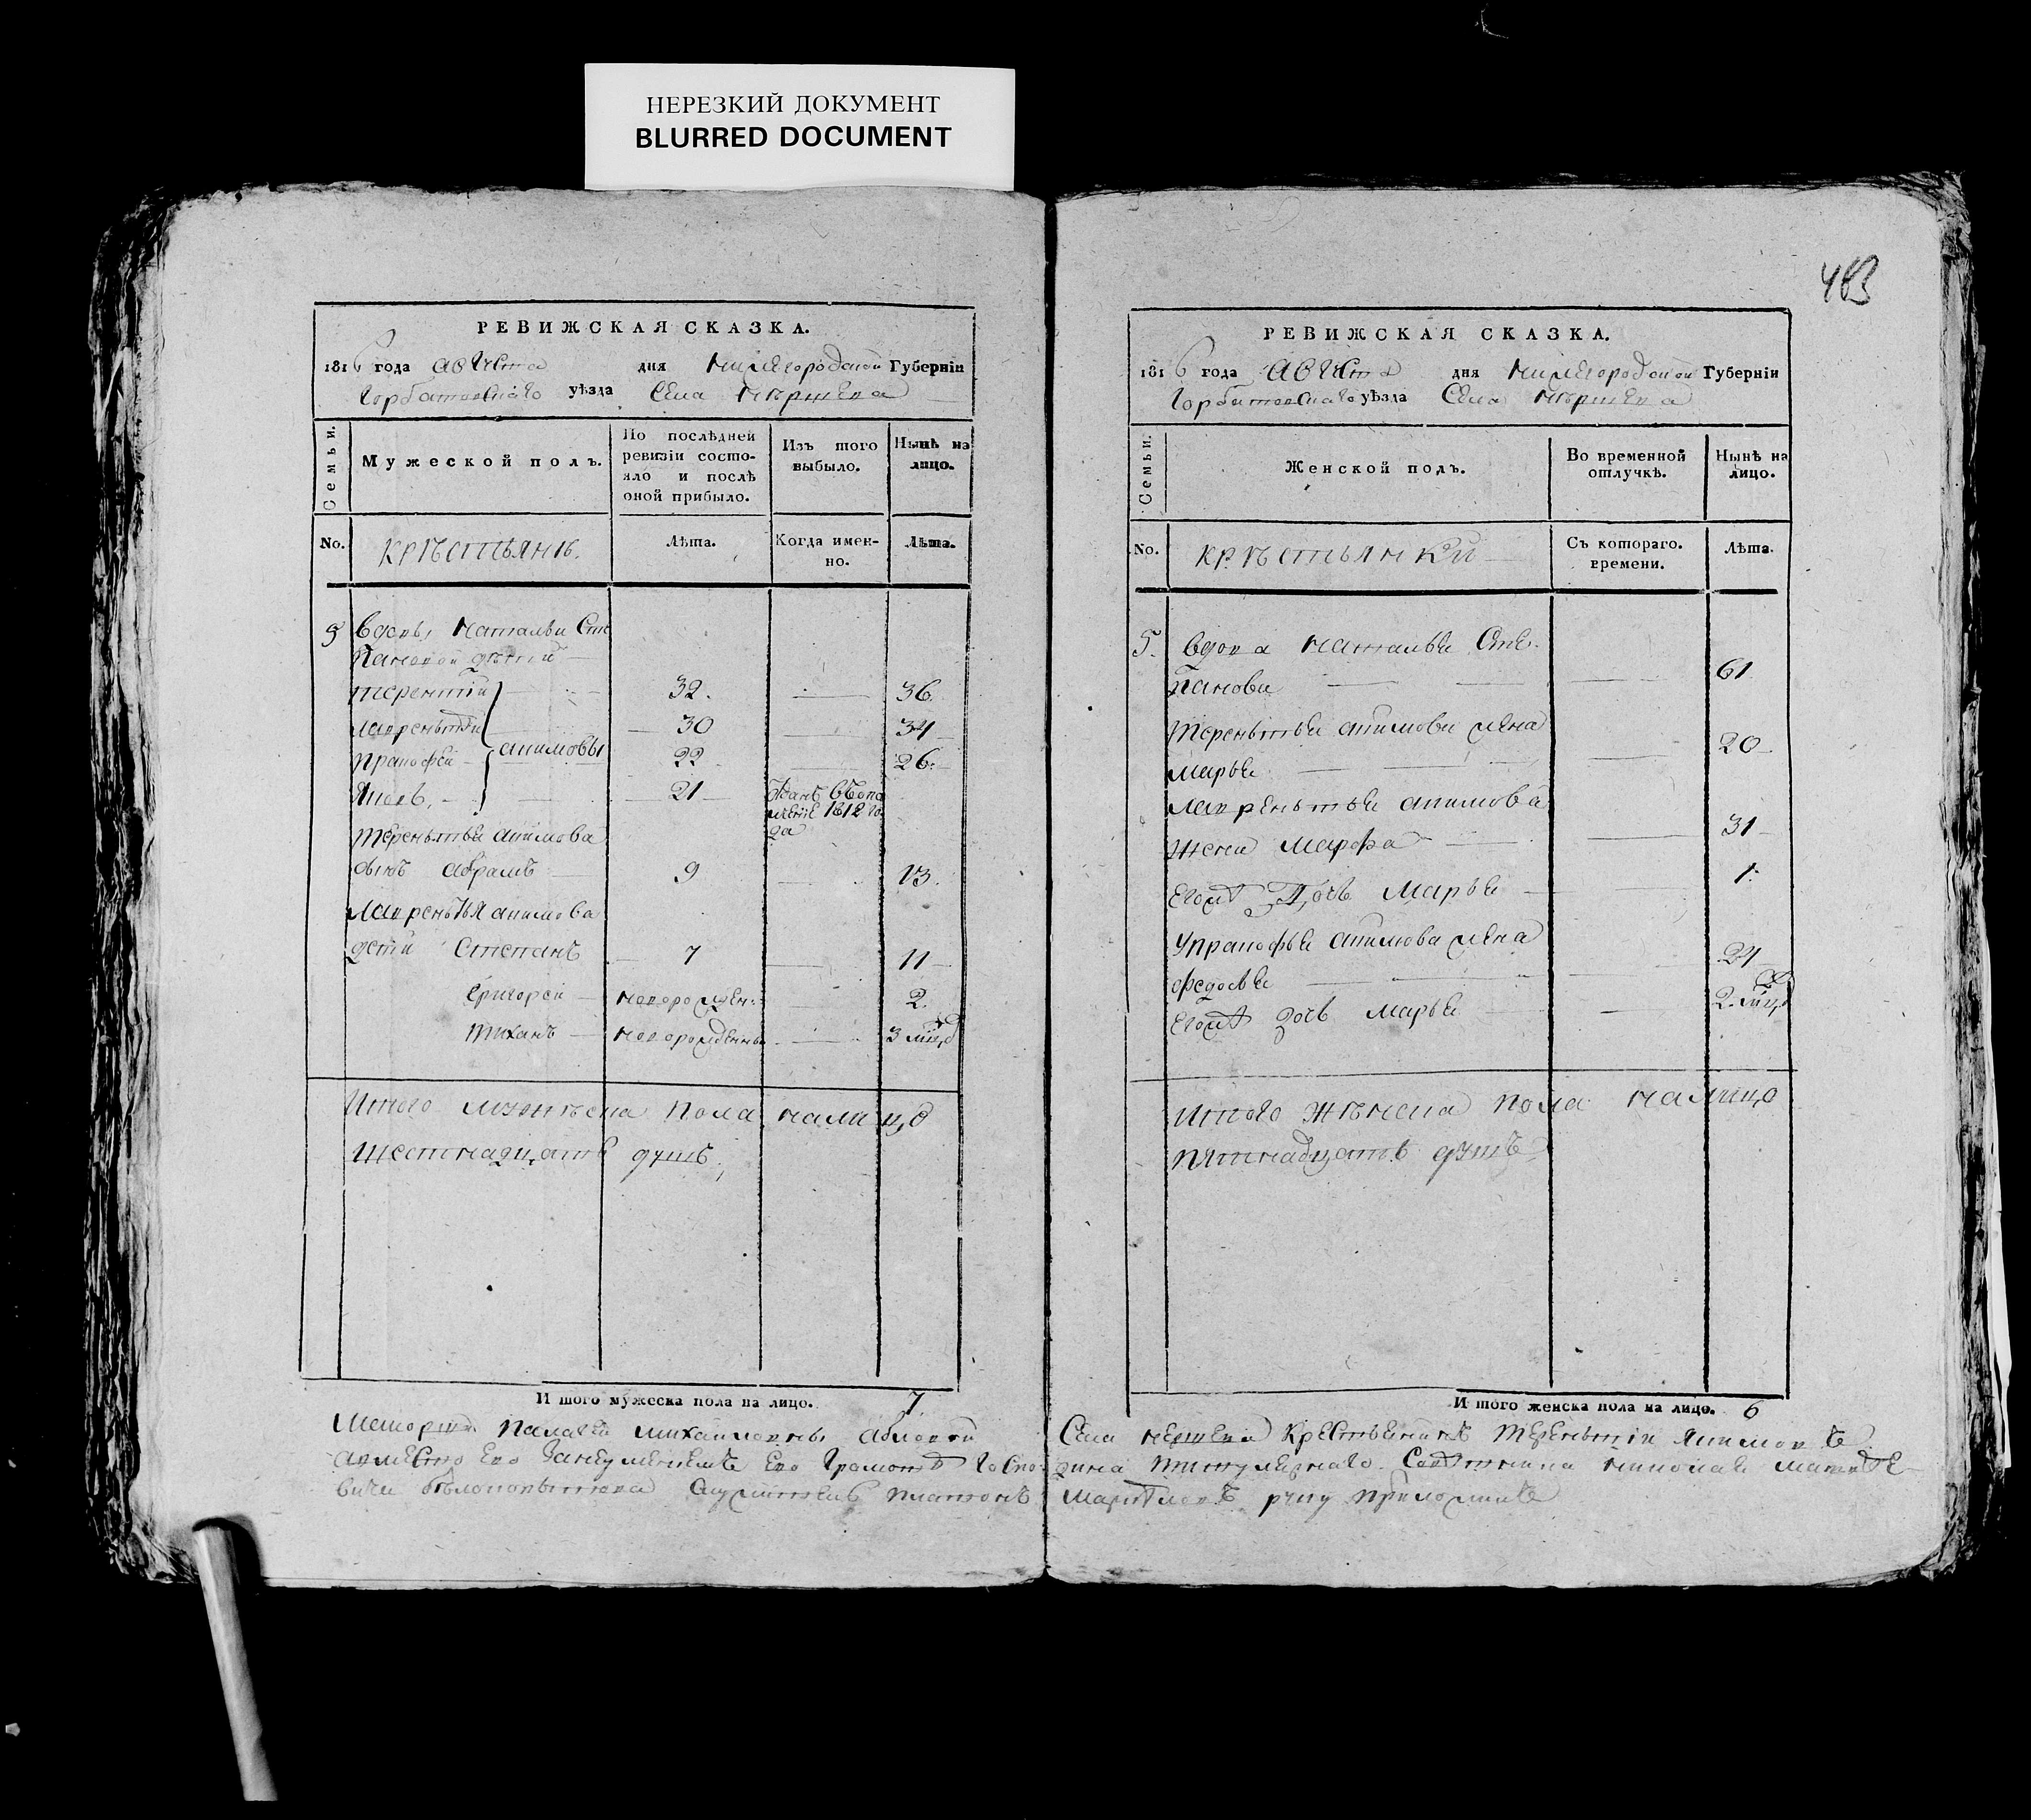 НЕРЕЗКИЙ ДОКУМЕНТ
BLURRED DOCUMENT
483
РЕВИЖСКАЯ СКАЗКА.
1816 года августа дня нижегородской Губерніи
Горбатовскаго уѣзда Села
Семьи.
Мужеской полъ.
По послѣдней ревизіи состо-
яло и послѣ
оной прибыло.
Изъ того
выбыло.
Нынѣ на
лицо.
No.
крѣстьянѣ.
Лѣта.
Когда имен-
но.
Лѣта.
5 Вдовы Натальи Сте
пановой дѣтей
терентій 32. 36.
лаврентей 30 34
прокофей акимовы 22 26.
Яковъ 21 1812 го
да
терентья акимова
сынъ абрамъ 9 13.
лаврентья акимова
дети Степанъ 7 11
григорей новорожден 2.
тиханъ новорожденны 3 мцо
Итого мужеска пола налицо
шестнадцать душъ
И того мужеска пола на лицо. 7
РЕВИЖСКАЯ СКАЗКА.
1816 года августа дня нижегородской Губерніи
Горбатовскаго уѣзда Села
Семьи.
Женской полъ.
Во временной
отлучкѣ.
Нынѣ на
лицо.
No.
крѣстьянки
Съ котораго.
времени.
Лѣта.
5. Вдова наталья Сте
панова 61
терентья акимова жена
марья 20
лаврентья акимова
жена марфа 31
Егожъ дочь марья 1.
Упрокофья акимова жена
федосья 24
Егожъ дочь марья 2 мцо
Итого жѣнска пола налицо
пятнадцать душъ
И того женска пола на лицо. 6
палагеи михайловны Села крестьянинъ терентій якимовъ
Николая матвѣе
вича Служитель платонъ руку приложилъ